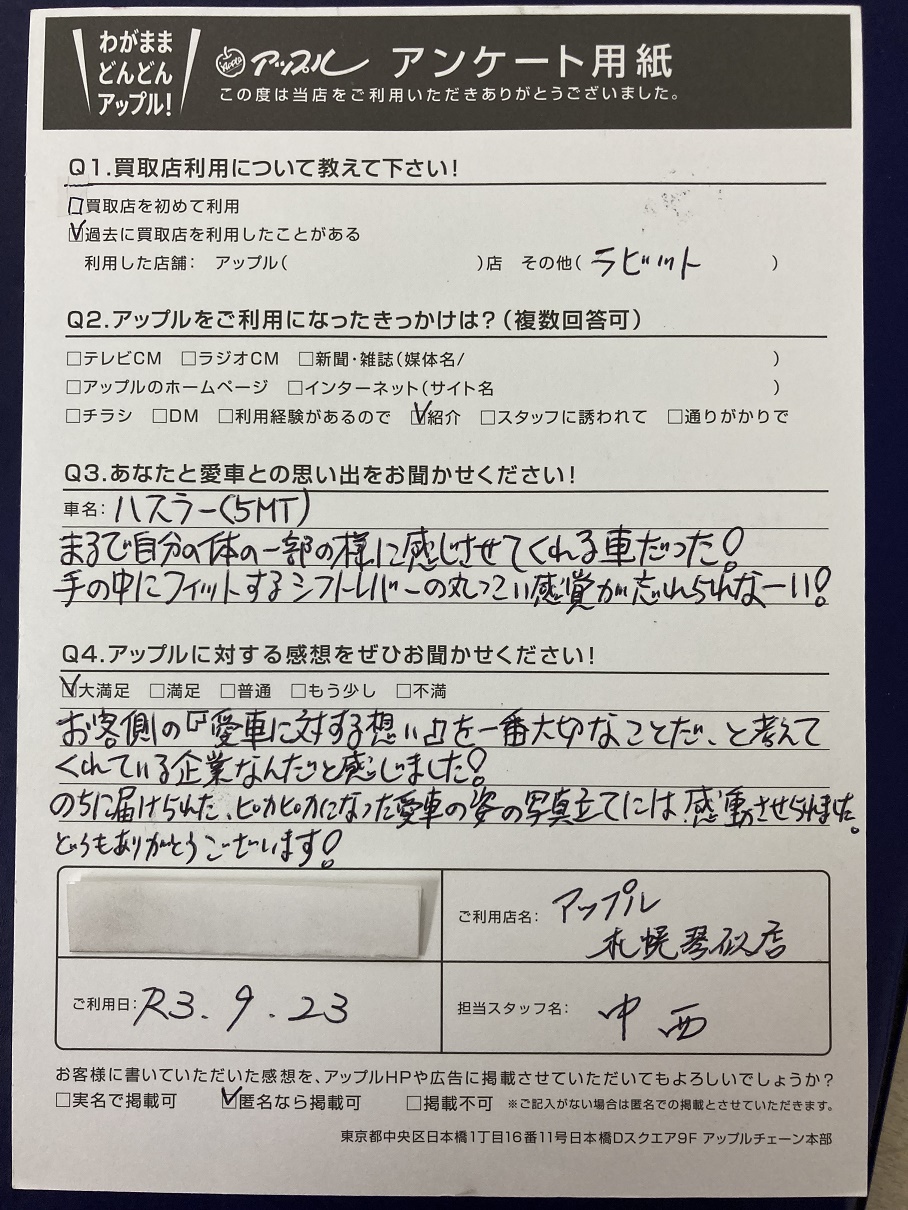 わがまま
どんどん
アップル!
Apple アップル アンケート用紙
この度は当店をご利用いただきありがとうございました。
Q1.買取店利用について教えて下さい!
□買取店を初めて利用
☑過去に買取店を利用したことがある
利用した店舗: アップル( )店 その他( ラビット )
Q2.アップルをご利用になったきっかけは?(複数回答可)
□テレビCM □ラジオCM □新聞・雑誌(媒体名/ )
□アップルのホームページ □インターネット(サイト名 )
□チラシ □DM □利用経験があるので ☑紹介 □スタッフに誘われて □通りがかりで
Q3.あなたと愛車との思い出をお聞かせください!
車名: ハスラー(5MT)
まるで自分の体の一部の様に感じさせてくれる車だった!
手の中にフィットするシフトレバーの丸っこい感覚が忘れられなーい!
Q4.アップルに対する感想をぜひお聞かせください!
☑大満足 □満足 □普通 □もう少し □不満
お客側の『愛車に対する想い』を一番大切なことだ、と考えて
くれている企業なんだと感じました!
のちに届けられた、ピカピカになった愛車の姿の写真立てには感動させられました。
どうもありがとうございます!
ご利用店名: アップル
札幌琴似店
ご利用日: R3.9.23
担当スタッフ名: 中西
お客様に書いていただいた感想を、アップルHPや広告に掲載させていただいてもよろしいでしょうか?
□実名で掲載可 ☑匿名なら掲載可 □掲載不可 ※ご記入がない場合は匿名での掲載とさせていただきます。
東京都中央区日本橋1丁目16番11号日本橋Dスクエア9F アップルチェーン本部